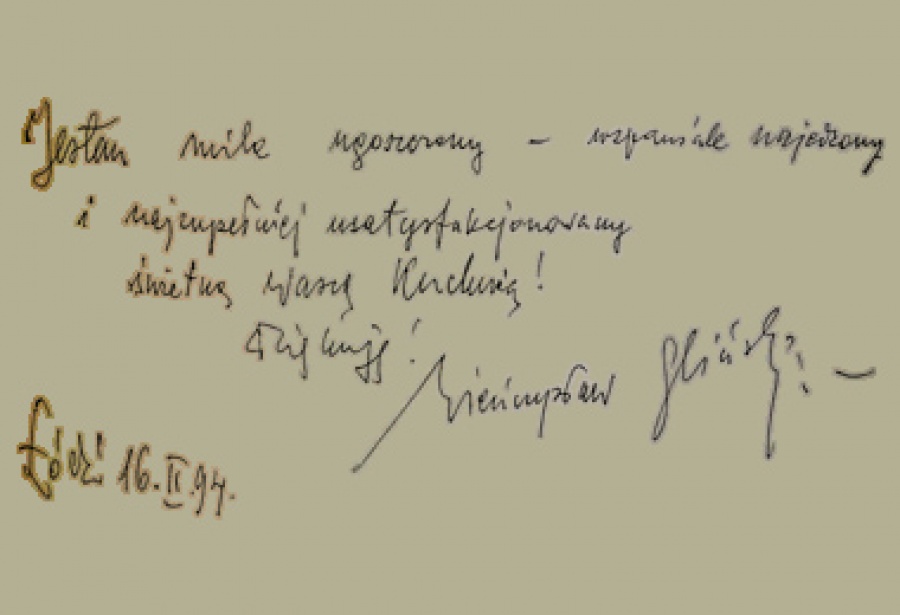 Jestem mile ugoszczony – wspaniale najedzony
i najzupełniej usatysfakcjonowany
świetną Waszą Kuchnią!
Dziękuję!
Łódź 16.II.94.